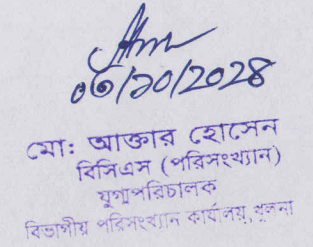 ০৩/১০/২০২৪
মো: আক্তার হোসেন
বিসিএস (পরিসংখ্যান)
যুগ্মপরিচালক
বিভাগীয় পরিসংখ্যান কার্যালয়, খুলনা